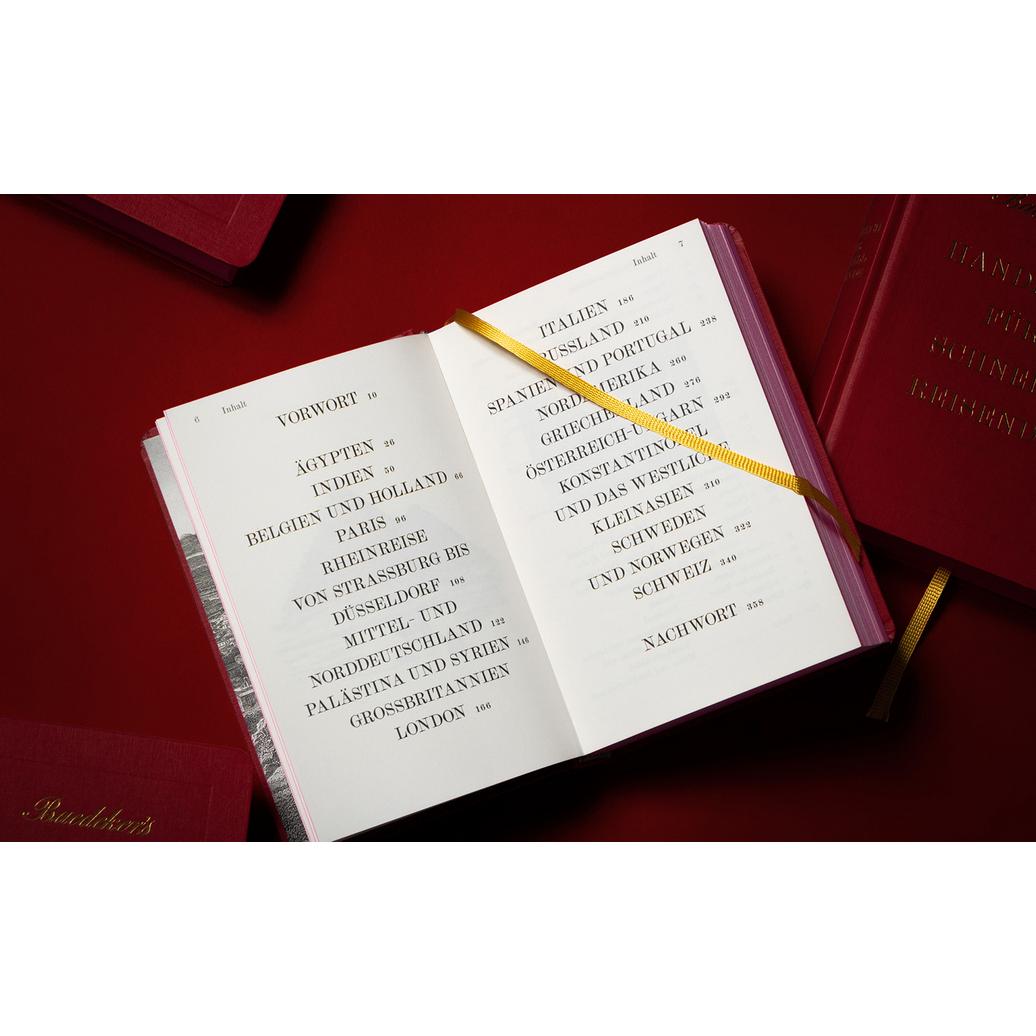 6 Inhalt
VORWORT 10
ÄGYPTEN 26
INDIEN 50
BELGIEN UND HOLLAND 66
PARIS 96
RHEINREISE
VON STRASSBURG BIS
DÜSSELDORF 108
MITTEL- UND
NORDDEUTSCHLAND 122
PALÄSTINA UND SYRIEN 146
GROSSBRITANNIEN
LONDON 166
Inhalt 7
ITALIEN 186
RUSSLAND 210
SPANIEN UND PORTUGAL 238
NORDAMERIKA 260
GRIECHENLAND 276
ÖSTERREICH-UNGARN 292
KONSTANTINOPEL
UND DAS WESTLICHE
KLEINASIEN 310
SCHWEDEN
UND NORWEGEN 322
SCHWEIZ 340
NACHWORT 358
Baedeker's
HAND
FÜR
SCHNE
REISEN